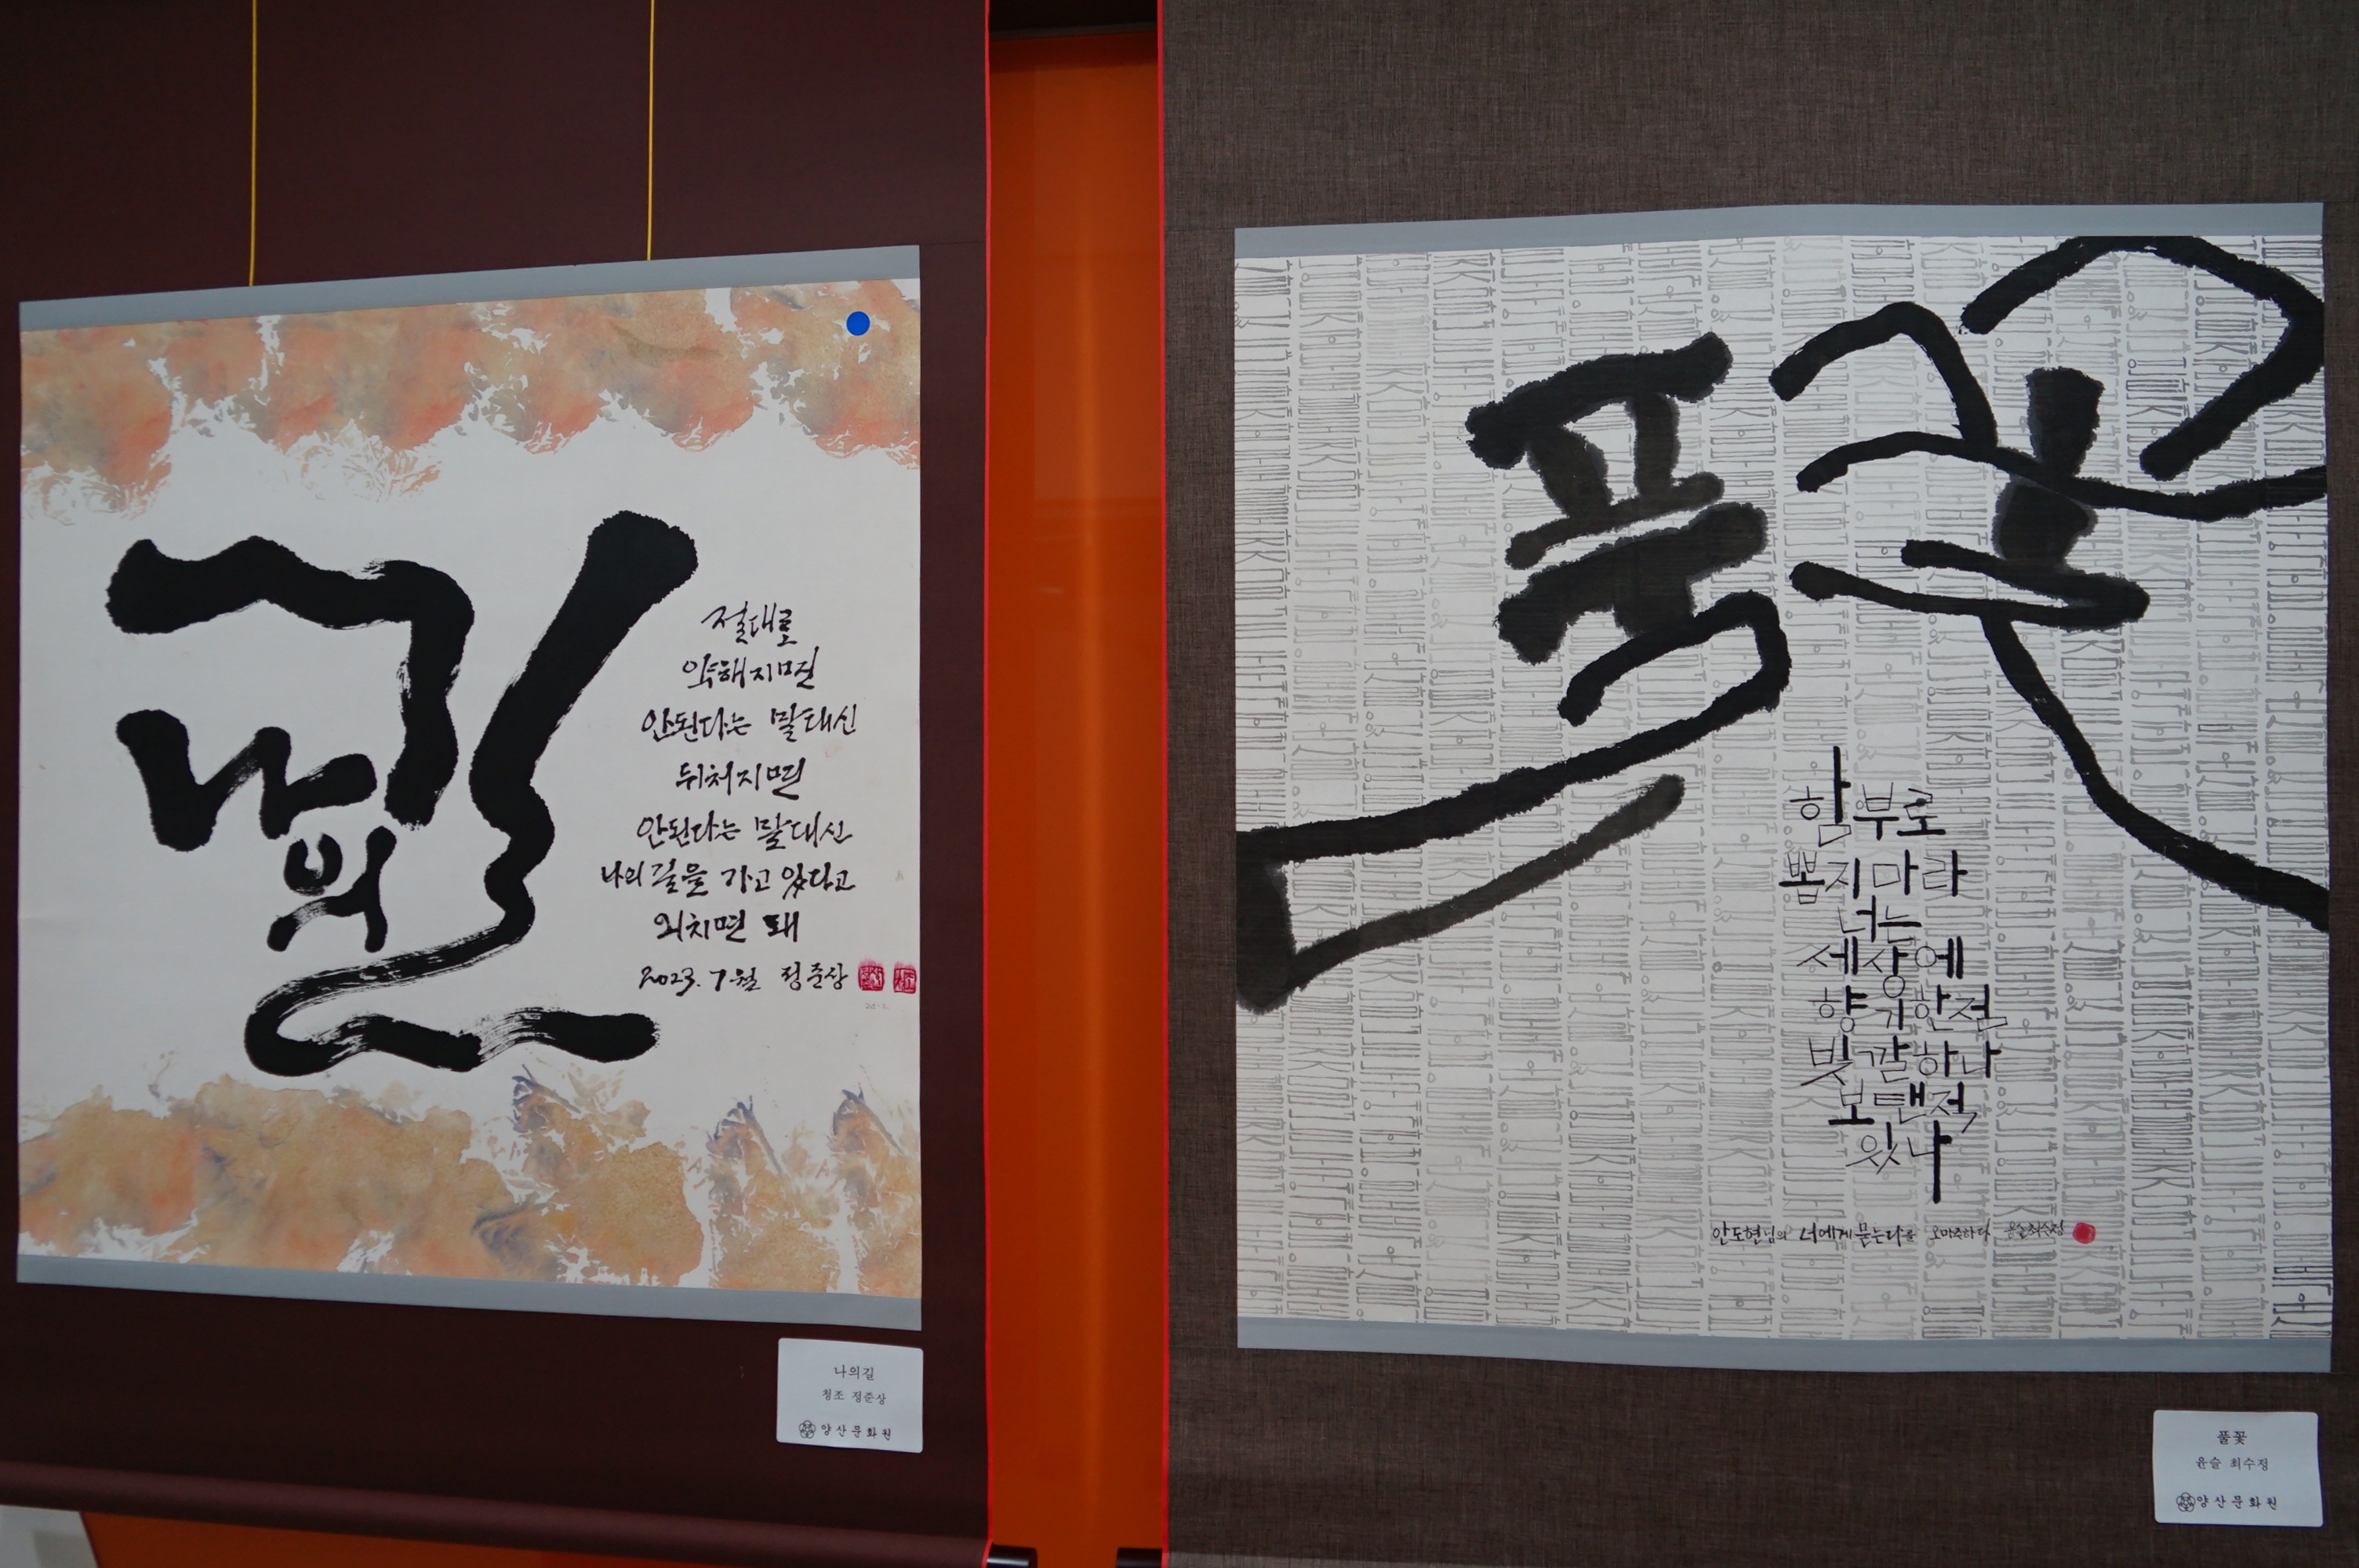 나의
길
절대로
약해지면
안된다는 말대신
뒤처지면
안된다는 말대신
나의 길을 가고 있다고
외치면 돼
2023. 7월 정준상
나의길
청조 정준상
양산문화원
풀꽃
함부로
뽑지마라
너는
세상에
향기한점
빛깔하나
보탠적
있나
안도현님의 너에게 묻는다를 오마주하다 윤슬최수정
풀꽃
윤슬 최수정
양산문화원